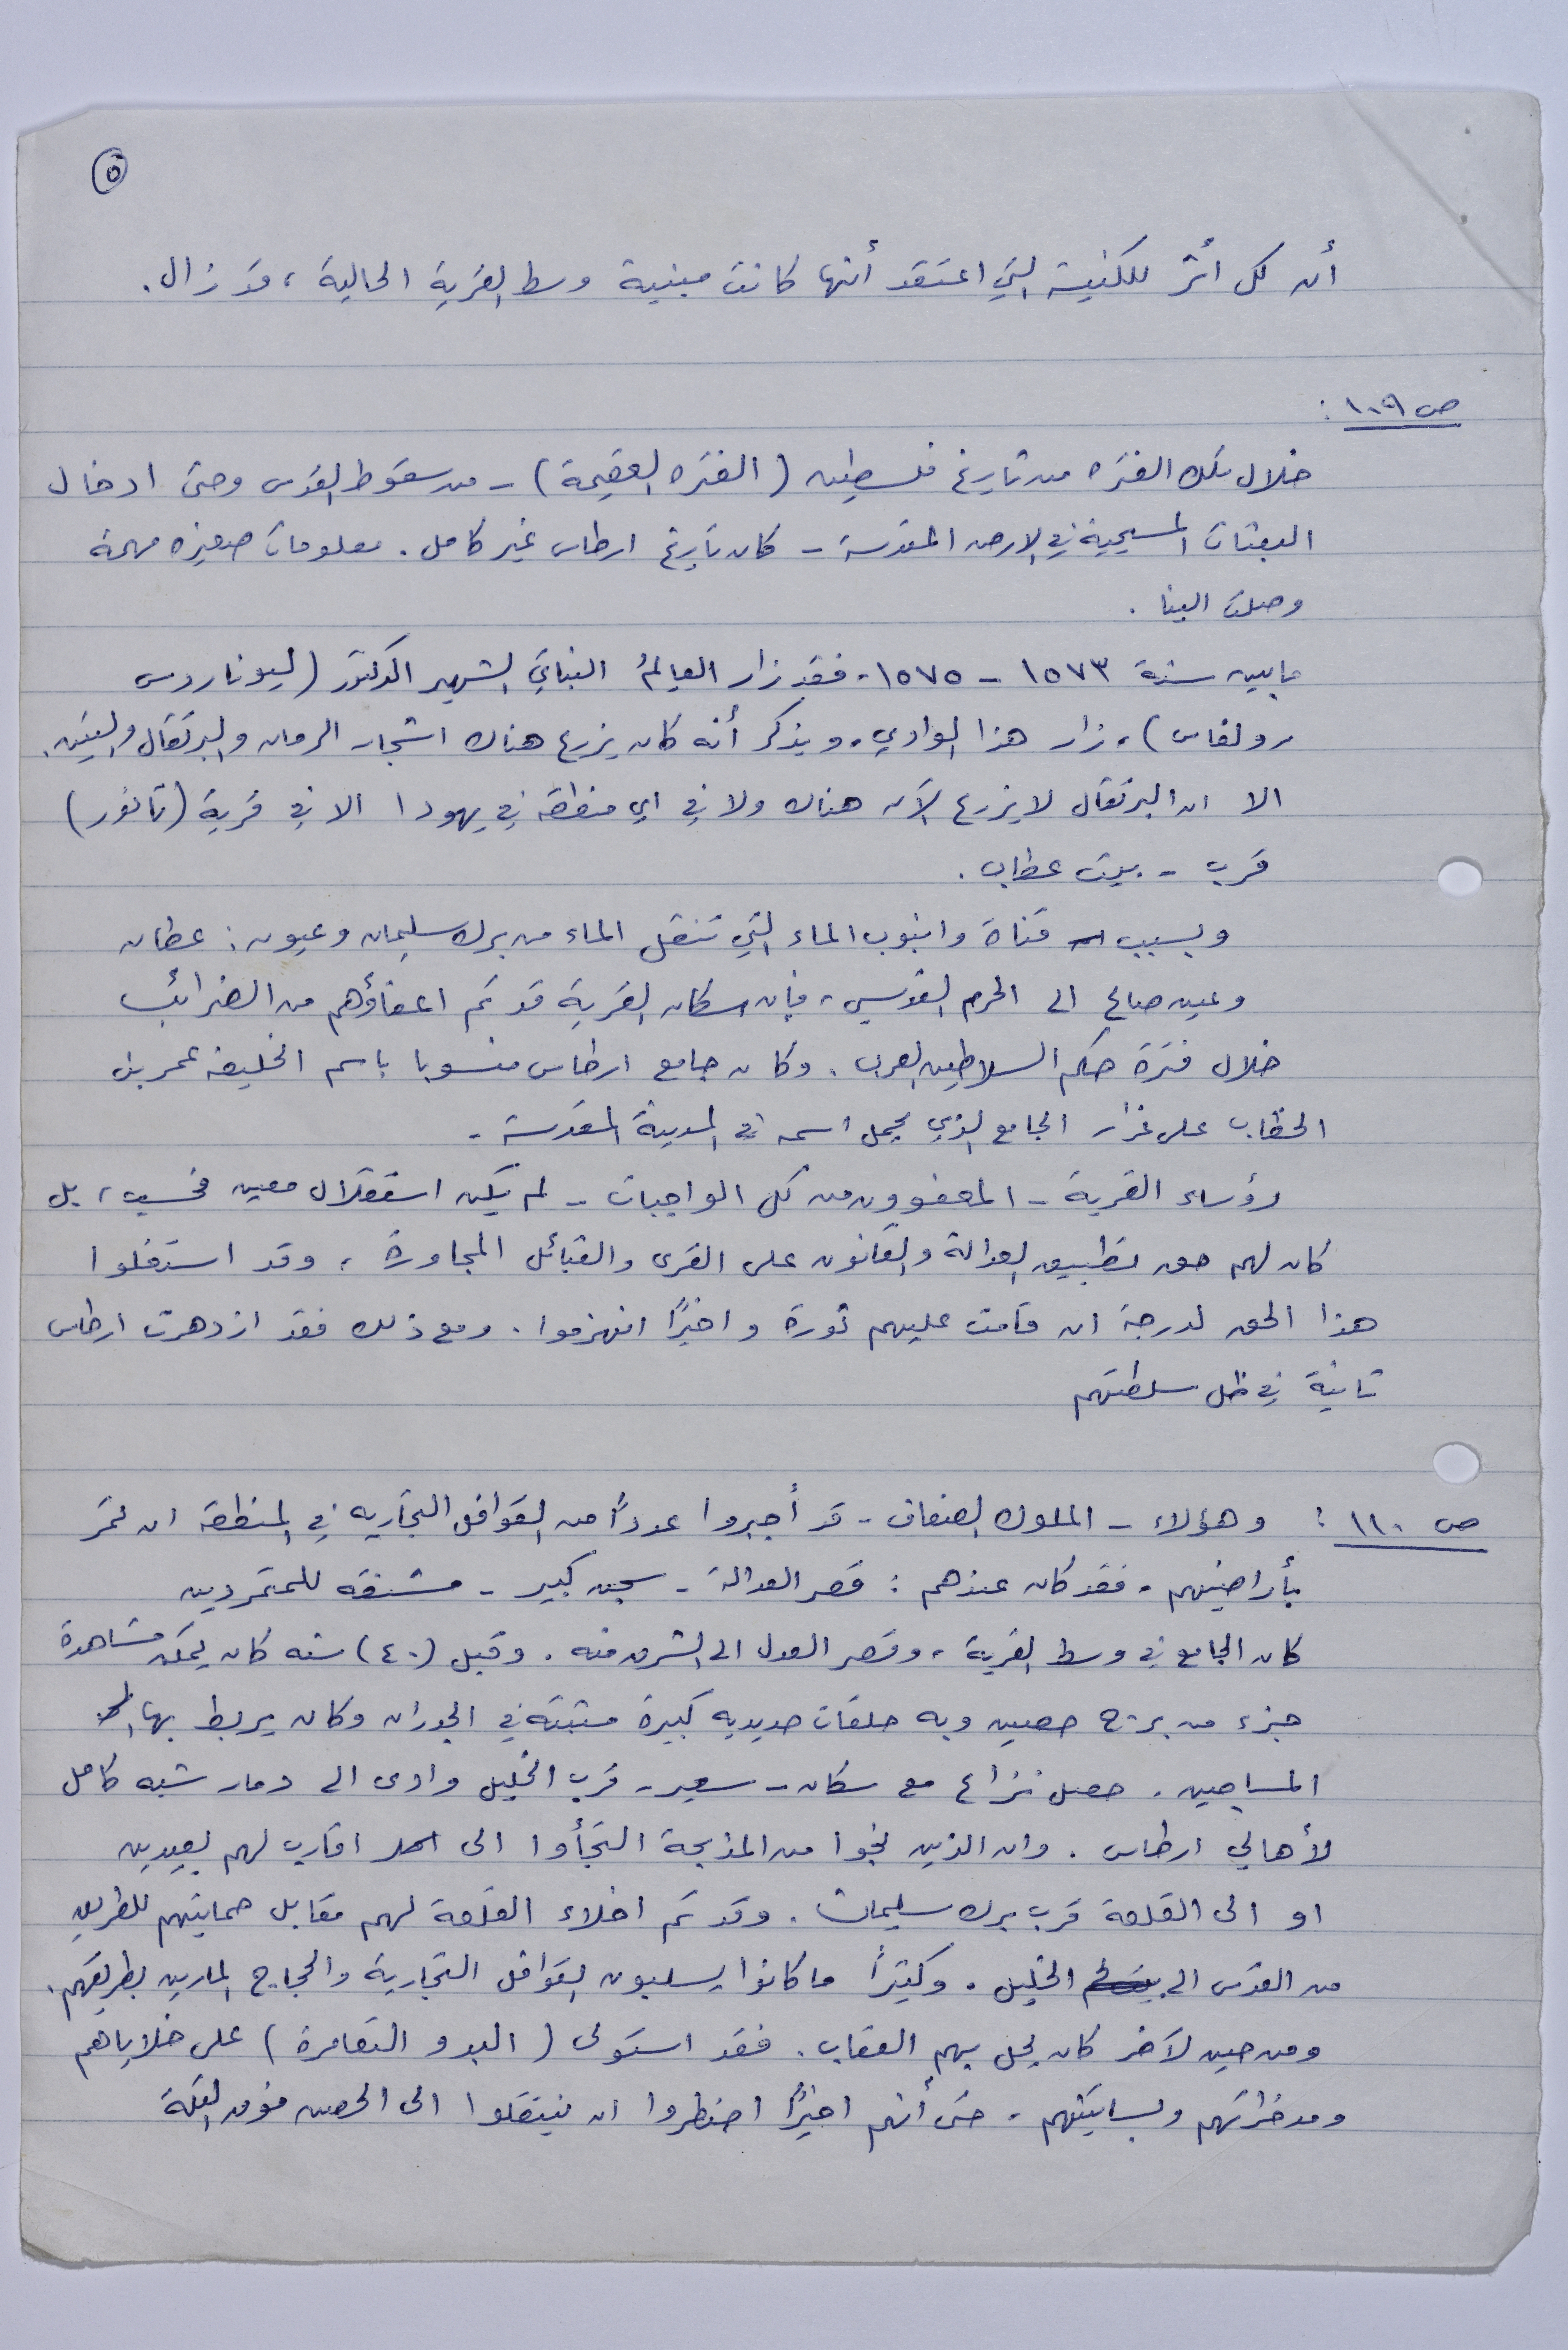 ٥
أن كل أثر للكنيسة التي اعتقد أنها كانت مبنية وسط القرية الحالية، قد زال.
ص ١٠٩ :
خلال تلك الفتره من تاريخ فلسطين (الفتره العقيمة) - من سقوط القدس وحتى ادخال
البعثات المسيحية في الارض المقدسة - كان تاريخ ارطاس غير كامل. معلومات صغيره مهمة
وصلت الينا.
مابين سنة ١٥٧٣ - ١٥٧٥، فقد زار العالمُ النباتي الشهير الدكتور (ليوناردوس
رولفاس)، زار هذا الوادي، ويذكر أنه كان يزرع هناك اشجار الرمان والبرتقال والتين.
الا ان البرتقال لا يزرع الآن هناك ولا في اي منطقة في يهودا الا في قرية (تانور)
قرب - بيت عطاب.
وبسبب قناة وانبوب الماء التي تنقل الماء من برك سليمان وعيون: عطان
وعين صالح الى الحرم القدسي، فإن سكان القرية قد تم اعفاؤهم من الضرائب
خلال فترة حكم السلاطين العرب. وكان جامع ارطاس منسوبا باسم الخليفة عمر بن
الخطاب على غرار الجامع الذي يحمل اسمه في المدينة المقدسة.
رؤساء القرية - المعفوون من كل الواجبات - لم يكن استقلال معين فحسب، بل
كان لهم حق تطبيق العدالة والقانون على القرى والقبائل المجاورة، وقد استغلوا
هذا الحق لدرجة ان قامت عليهم ثورة واخيرًا انهزموا. ومع ذلك فقد ازدهرت ارطاس
ثانية في ظل سلطتهم
ص ١١٠ : وهؤلاء - الملوك الضعاف - قد أجبروا عددًا من القوافل التجاريه في المنطقة ان تمر
بأراضيهم، فقد كان عندهم: قصر العدالة - سجن كبير - مشنقه للمتمردين
كان الجامع في وسط القرية، وقصر العدل الى الشرق منه. وقبل (٤٠) سنه كان يمكن مشاهدة
جزء من برج حصين وبه حلقات حديديه كبيرة مثبتة في الجدران وكان يربط بها
المساجين. حصل نزاع مع سكان - سعير - قرب الخليل وادى الى دمار شبه كامل
لأهالي ارطاس. وان الذين نجوا من المذبحة التجأوا الى اقارب لهم بعيدين
او الى القلعة قرب برك سليمان. وقد تم اخلاء القلعة لهم مقابل حمايتهم للطريق
من القدس الى الخليل. وكثيرًا ما كانوا يسلبون القوافل التجارية والحجاج المارين بطريقهم.
ومن حين لآخر كان يحل بهم العقاب. فقد استولى (البدو التعامرة) على خلاياهم
ومدخراتهم وبساتينهم، حتى أنهم اخيرًا اضطروا ان ينتقلوا الى الحصن فوق التلة